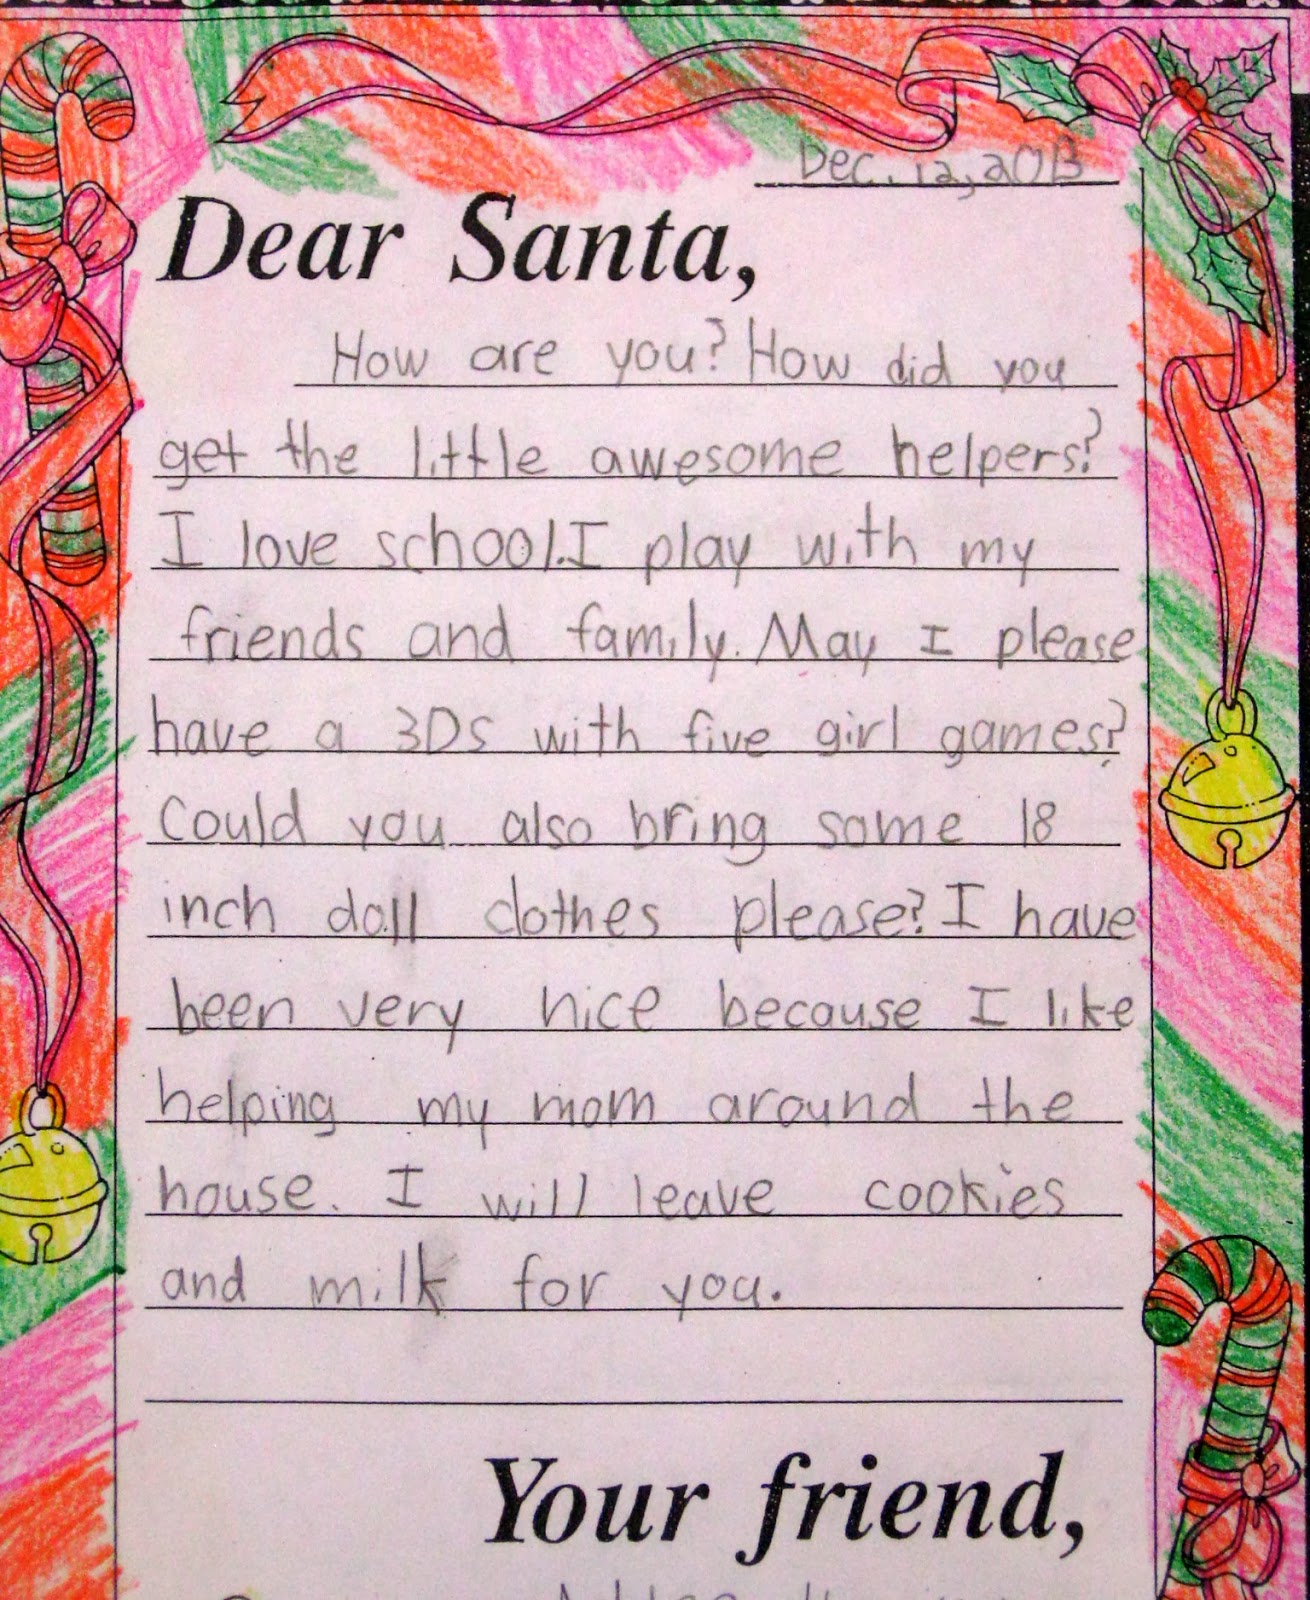 Dec. 12, 2013
Dear Santa,
How are you? How did you
get the little awesome helpers?
I love school. I play with my
friends and family. May I please
have a 3DS with five girl games?
Could you also bring some 18
inch doll clothes please? I have
been very nice because I like
helping my mom around the
house. I will leave cookies
and milk for you.
Your friend,